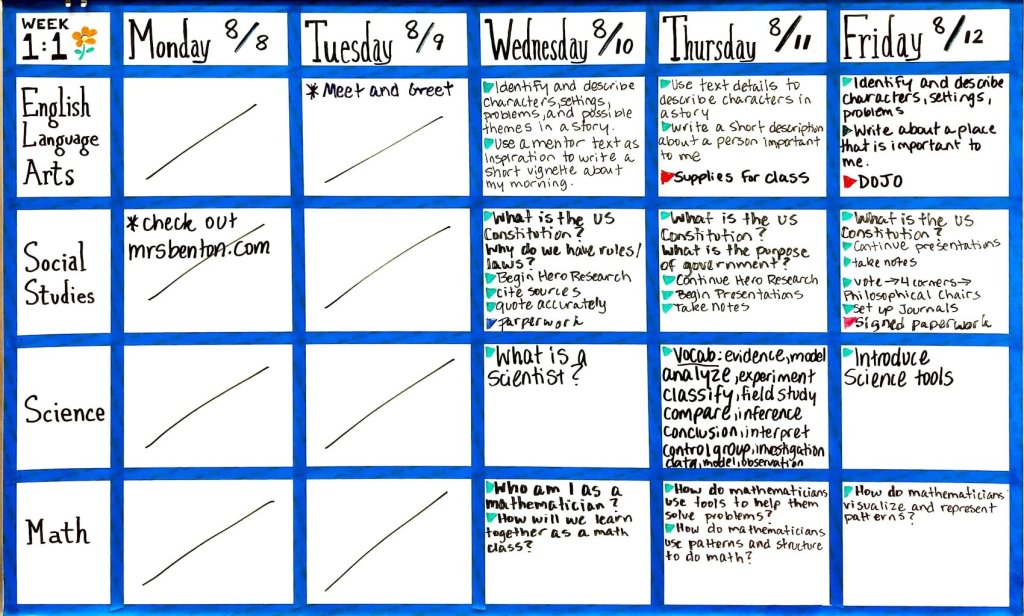 WEEK
1:1
Monday 8/8
Tuesday 8/9
Wednesday 8/10
Thursday 8/11
Friday 8/12
English
Language
Arts
* Meet and Greet
Identify and describe
characters, settings,
problems, and possible
themes in a story.
Use a mentor text as
inspiration to write a
short vignette about
my morning.
Use text details to
describe characters in
a story
Write a short description
about a person important
to me
Supplies for class
Identify and describe
characters, settings,
problems
Write about a place
that is important to
me.
DOJO
Social
Studies
* check out
mrsbenton.com
What is the US
Constitution?
Why do we have rules/
laws?
Begin Hero Research
cite sources
quote accurately
Parperwork
What is the US
Constitution?
What is the purpose
of government?
Continue Hero Research
Begin Presentations
Take Notes
What is the US
Constitution?
Continue presentations
take notes
vote → 4 corners →
Philosophical Chairs
Set up Journals
Signed paperwork
Science
What is a
Scientist?
Vocab: evidence, model
analyze, experiment
classify, field study
compare, inference
conclusion, interpret
control group, investigation
data, model, observation
Introduce
Science tools
Math
Who am I as a
mathematician?
How will we learn
together as a math
class?
How do mathematicians
use tools to help them
solve problems?
How do mathematicians
use patterns and structure
to do math?
How do mathematicians
visualize and represent
patterns?